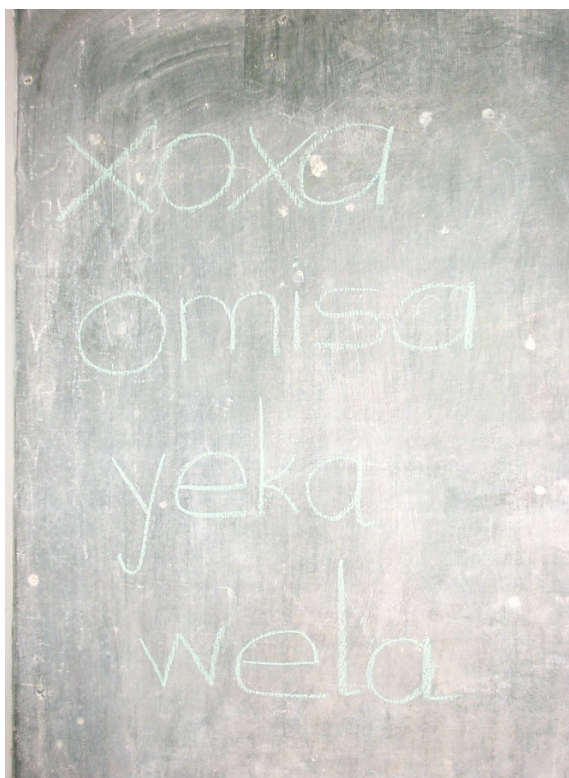 xoxa
omisa
yeka
wela